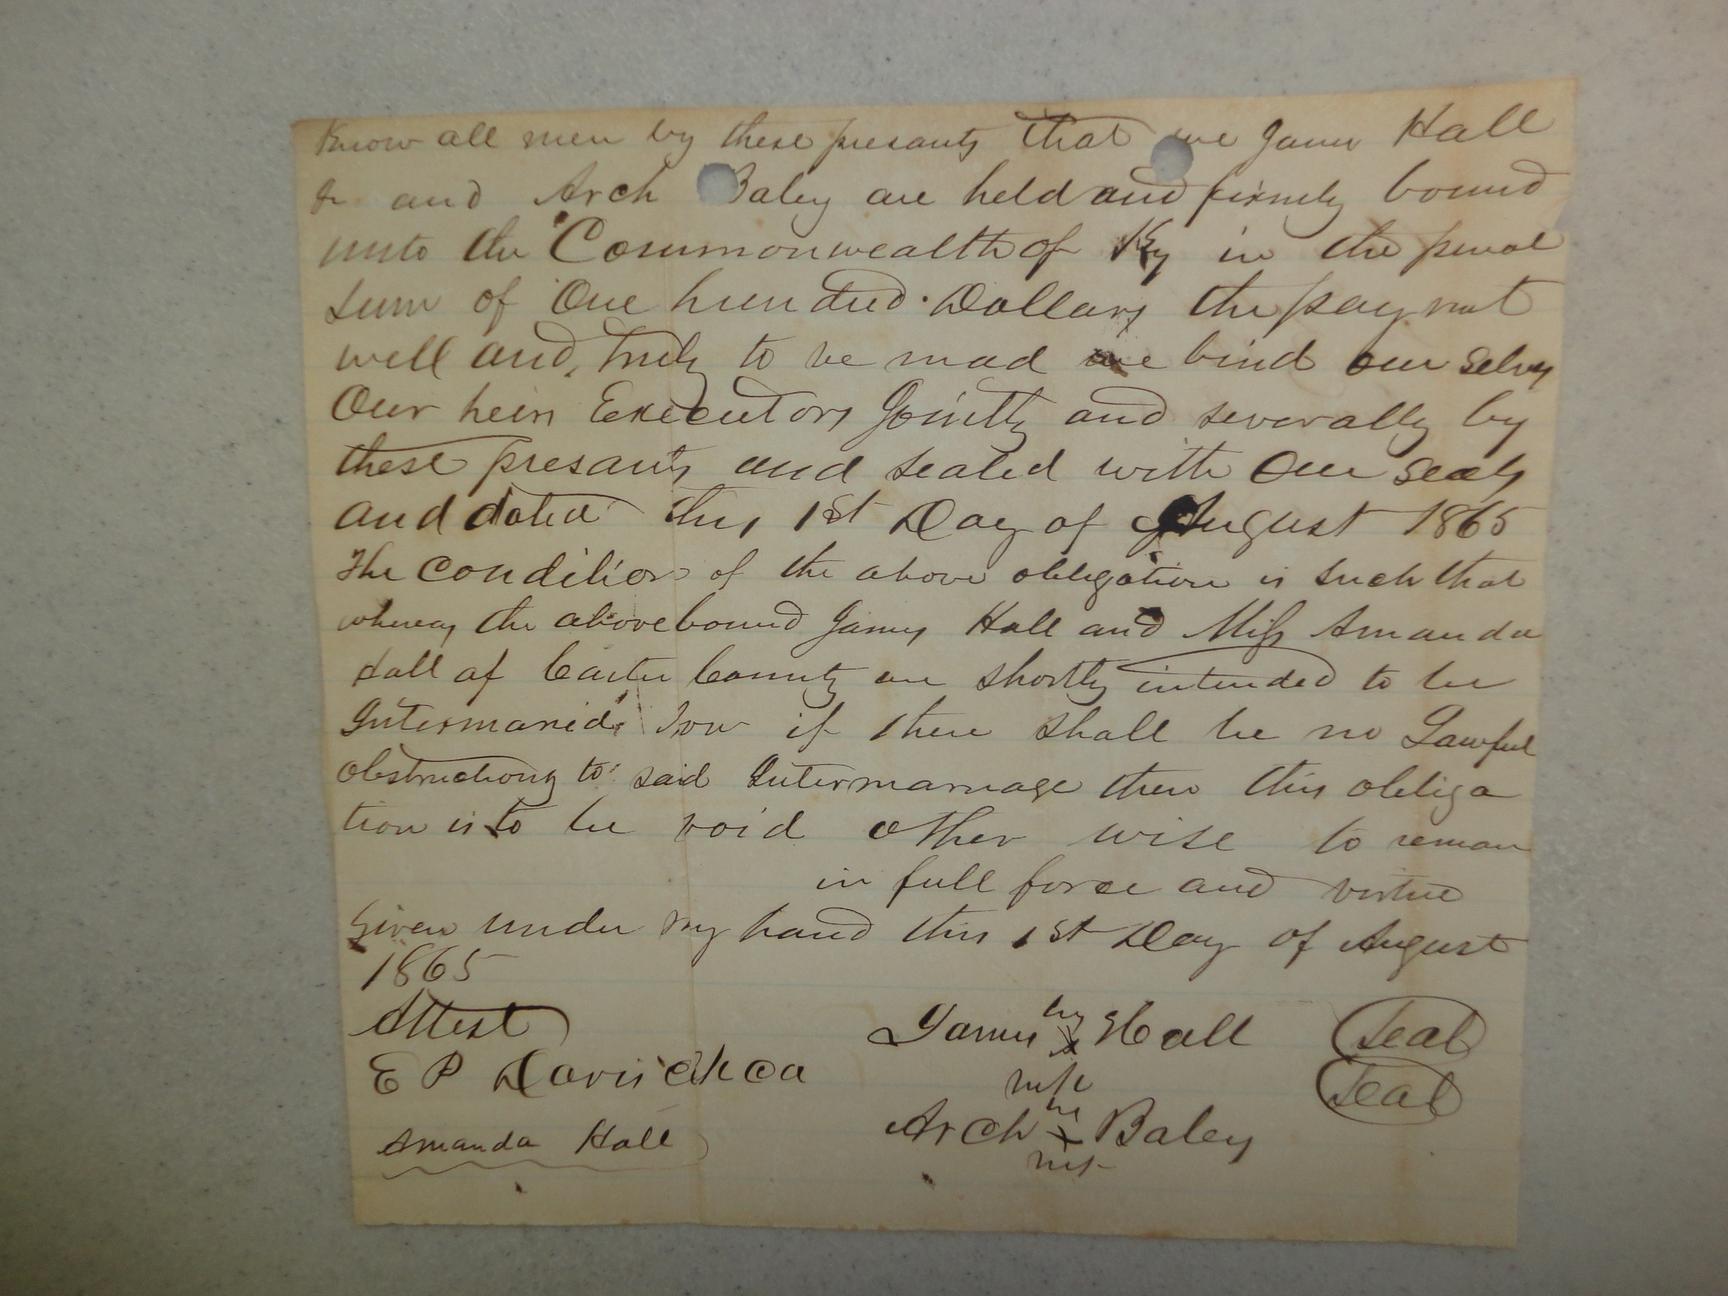 Know all men by these presants that we James Hall
Jr and Arch Baley are held and firmly bound
unto the Commonwealth of Ky in the penal
sum of One hundred Dollars the paymt
well and truly to be mad we bind our selvs
Our heirs Executors Jointly and severally by
these presants and sealed with Our seals
and dated this 1st Day of August 1865
The condition of the above obligation is such that
whereas the above bound James Hall and Miss Amanda
Hall of Carter County are shortly intended to be
Intermaried Now if there shall be no Lawful
obstructions to said Intermarriage then this obliga
tion is to be void other wise to reman
in full force and virtue
Given under my hand this 1st Day of August
1865
Attest
James his x Hall Seal
mk
E P Davis
Seal
Arch his x Baley
mk
Amanda Hall